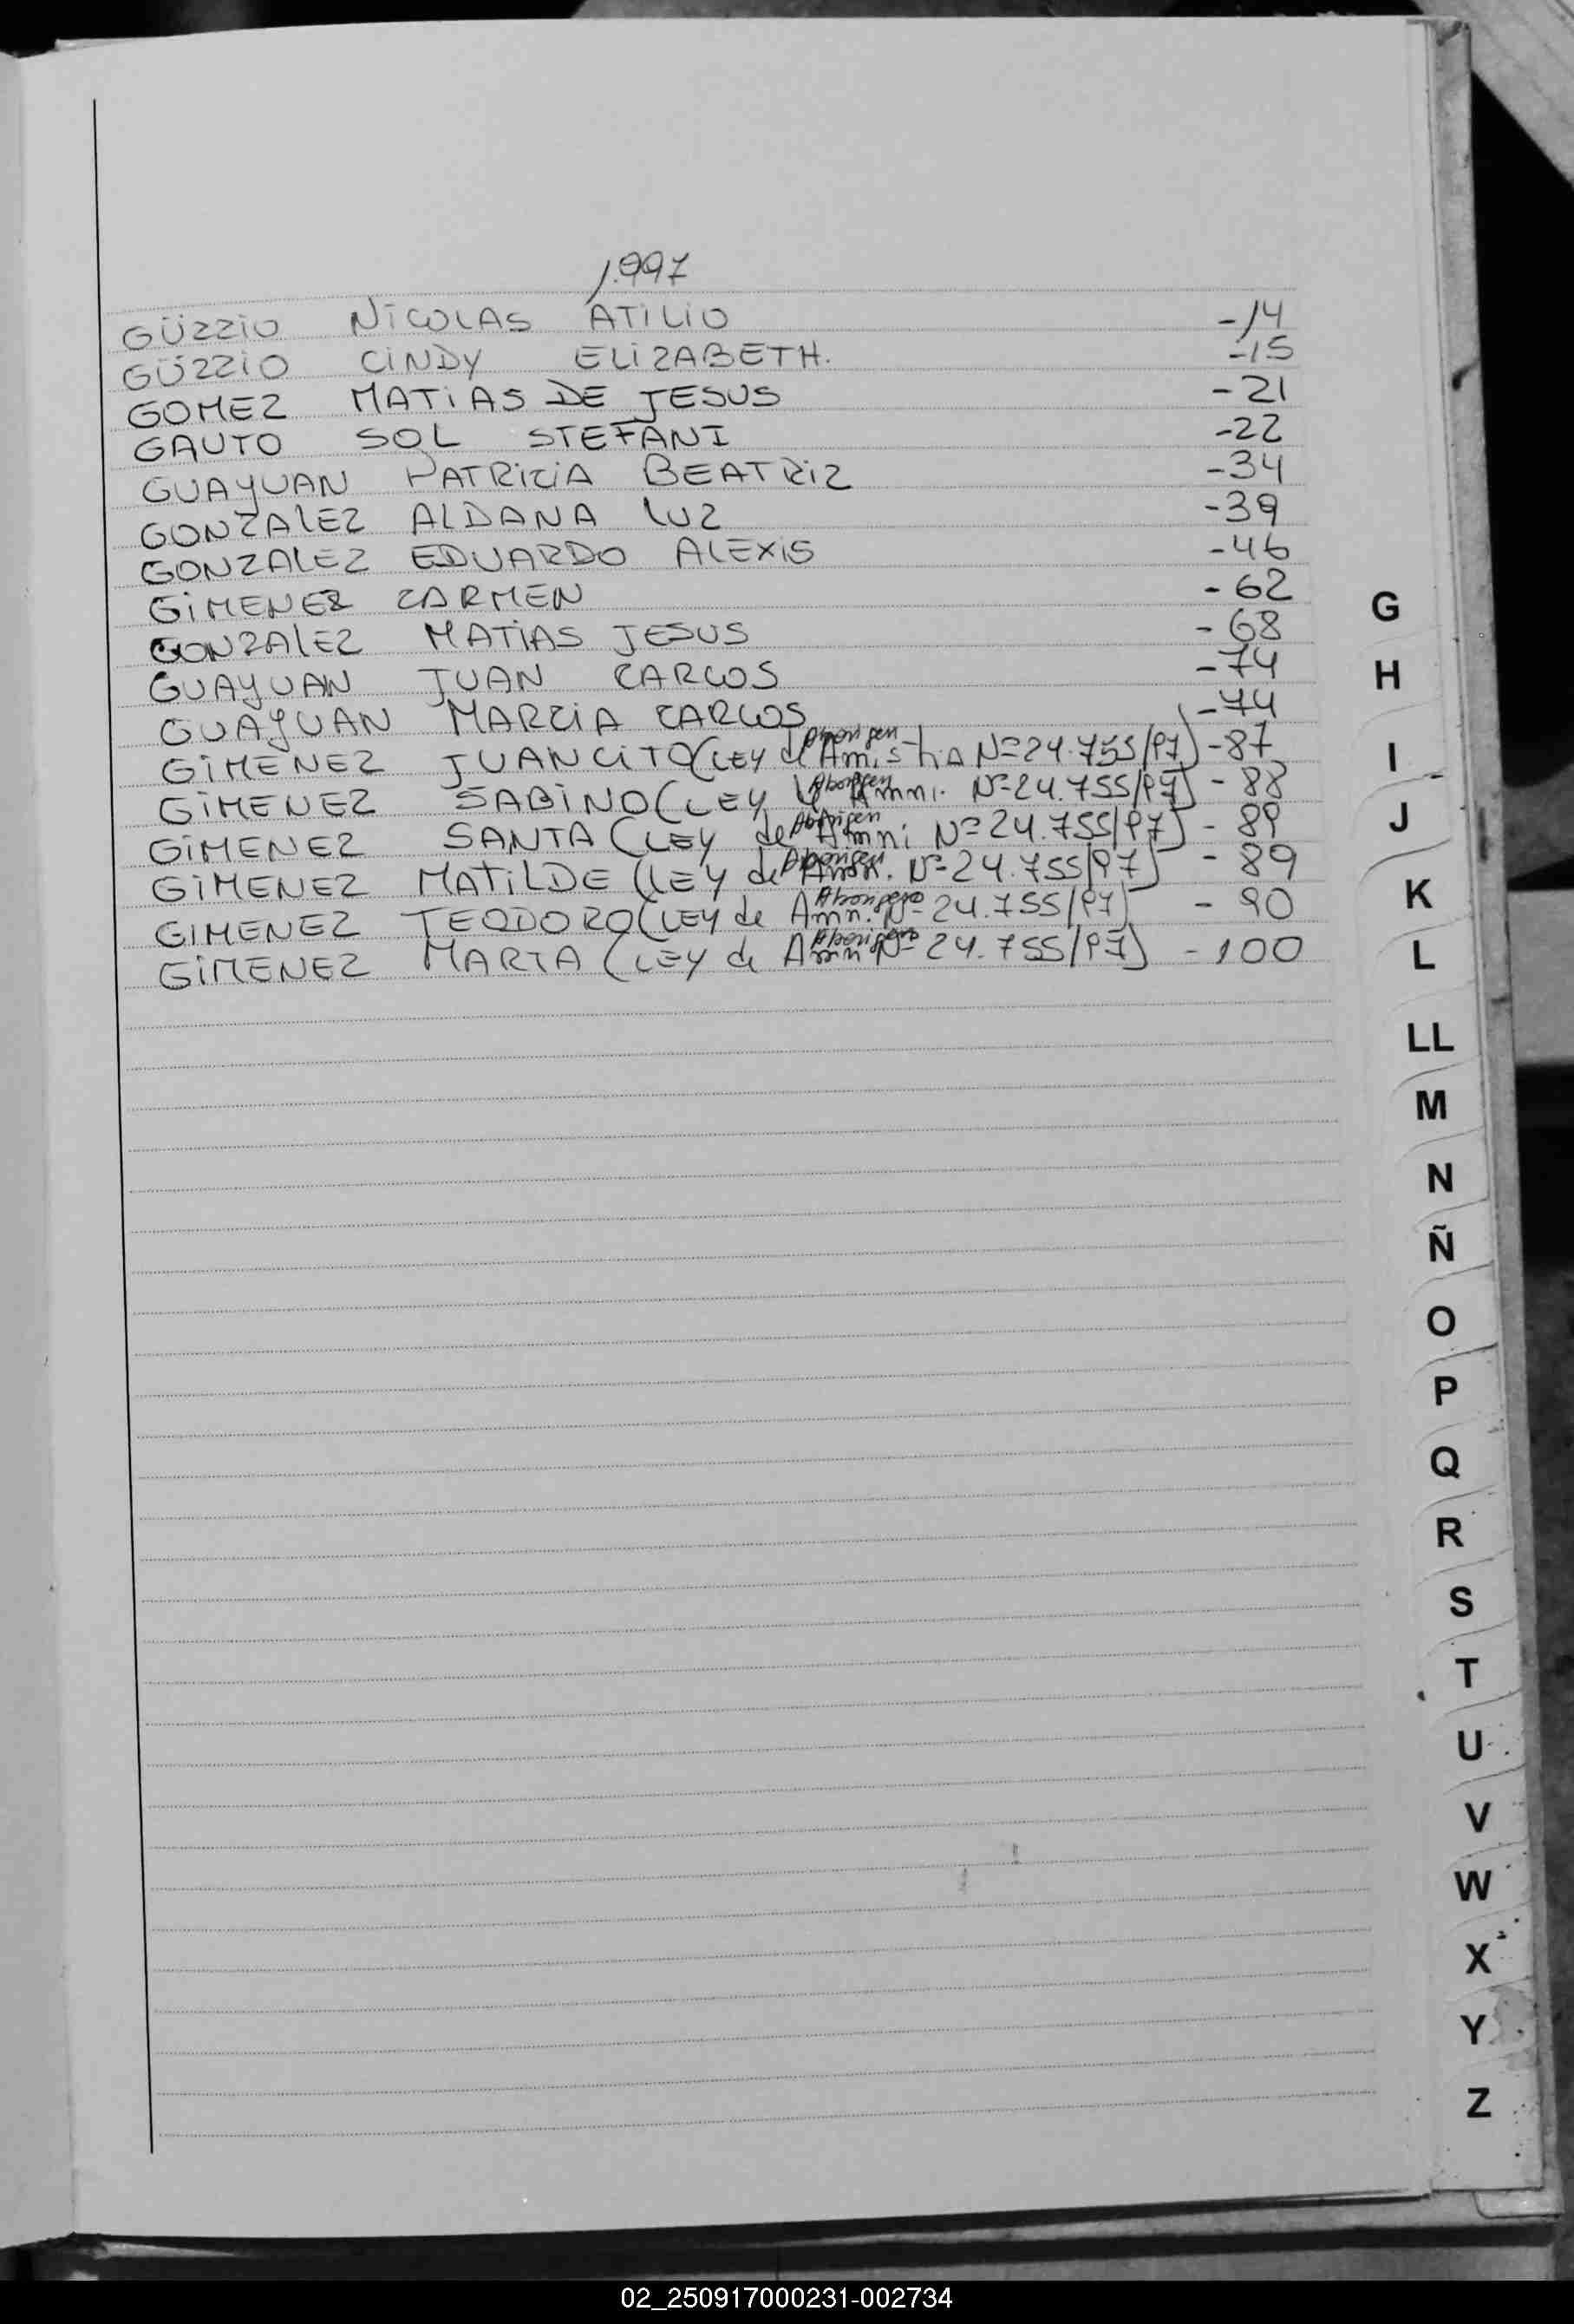 1.997
GÜZZIO NICOLAS ATILIO -14
GÜZZIO CINDY ELIZABETH. -15
GOMEZ MATIAS DE JESUS -21
GAUTO SOL STEFANI -22
GUAYUAN PATRICIA BEATRIZ -34
GONZALEZ ALDANA LUZ -39
GONZALEZ EDUARDO ALEXIS -46
GIMENEZ CARMEN -62
GONZALEZ MATIAS JESUS -68
GUAYUAN JUAN CARLOS -74
GUAYUAN MARCIA CARLOS -74
Aborigen
GIMENEZ JUANCITO (LEY de Amistia Nº 24.755/97) -87
Aborigen
GIMENEZ SABINO (LEY de Amni. Nº 24.755/97) -88
Aborigen
GIMENEZ SANTA (LEY de Amni Nº 24.755/97) -89
Aborigen
GIMENEZ MATILDE (LEY de Nº 24.755/97) -89
Aborigen
GIMENEZ TEODORO (LEY de Amn. Nº 24.755/97) -90
Aborigen
GIMENEZ MARTA (LEY de Amn Nº 24.755/97) -100
G
H
I
J
K
L
LL
M
N
Ñ
O
P
Q
R
S
T
U
V
W
X
Y
Z
02_250917000231-002734